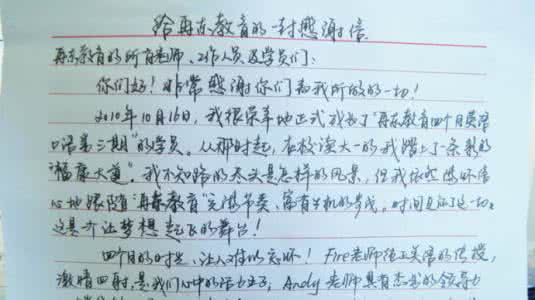 给再东教育的一封感谢信
再东教育的所有老师、工作人员及学员们:
你们好!非常感谢你们为我所做的一切!
2010年10月16日,我很荣幸地正式成为了“再东教育四个月英语
口语第三期”的学员。从那时起,在校读大一的我踏上了一条新的
“福康大道”。我不知路的尽头是怎样的风景,但我依然满怀信
心地跟随“再东教育”充满节奏、富有生机的步伐。时间见证了这一切,
这是一个让梦想起飞的舞台!
四个月的时光,让人难以忘怀!Fire老师纯正美语的传授,
激情四射,是我们心中的活力王子;Andy老师具有杰出的领导力